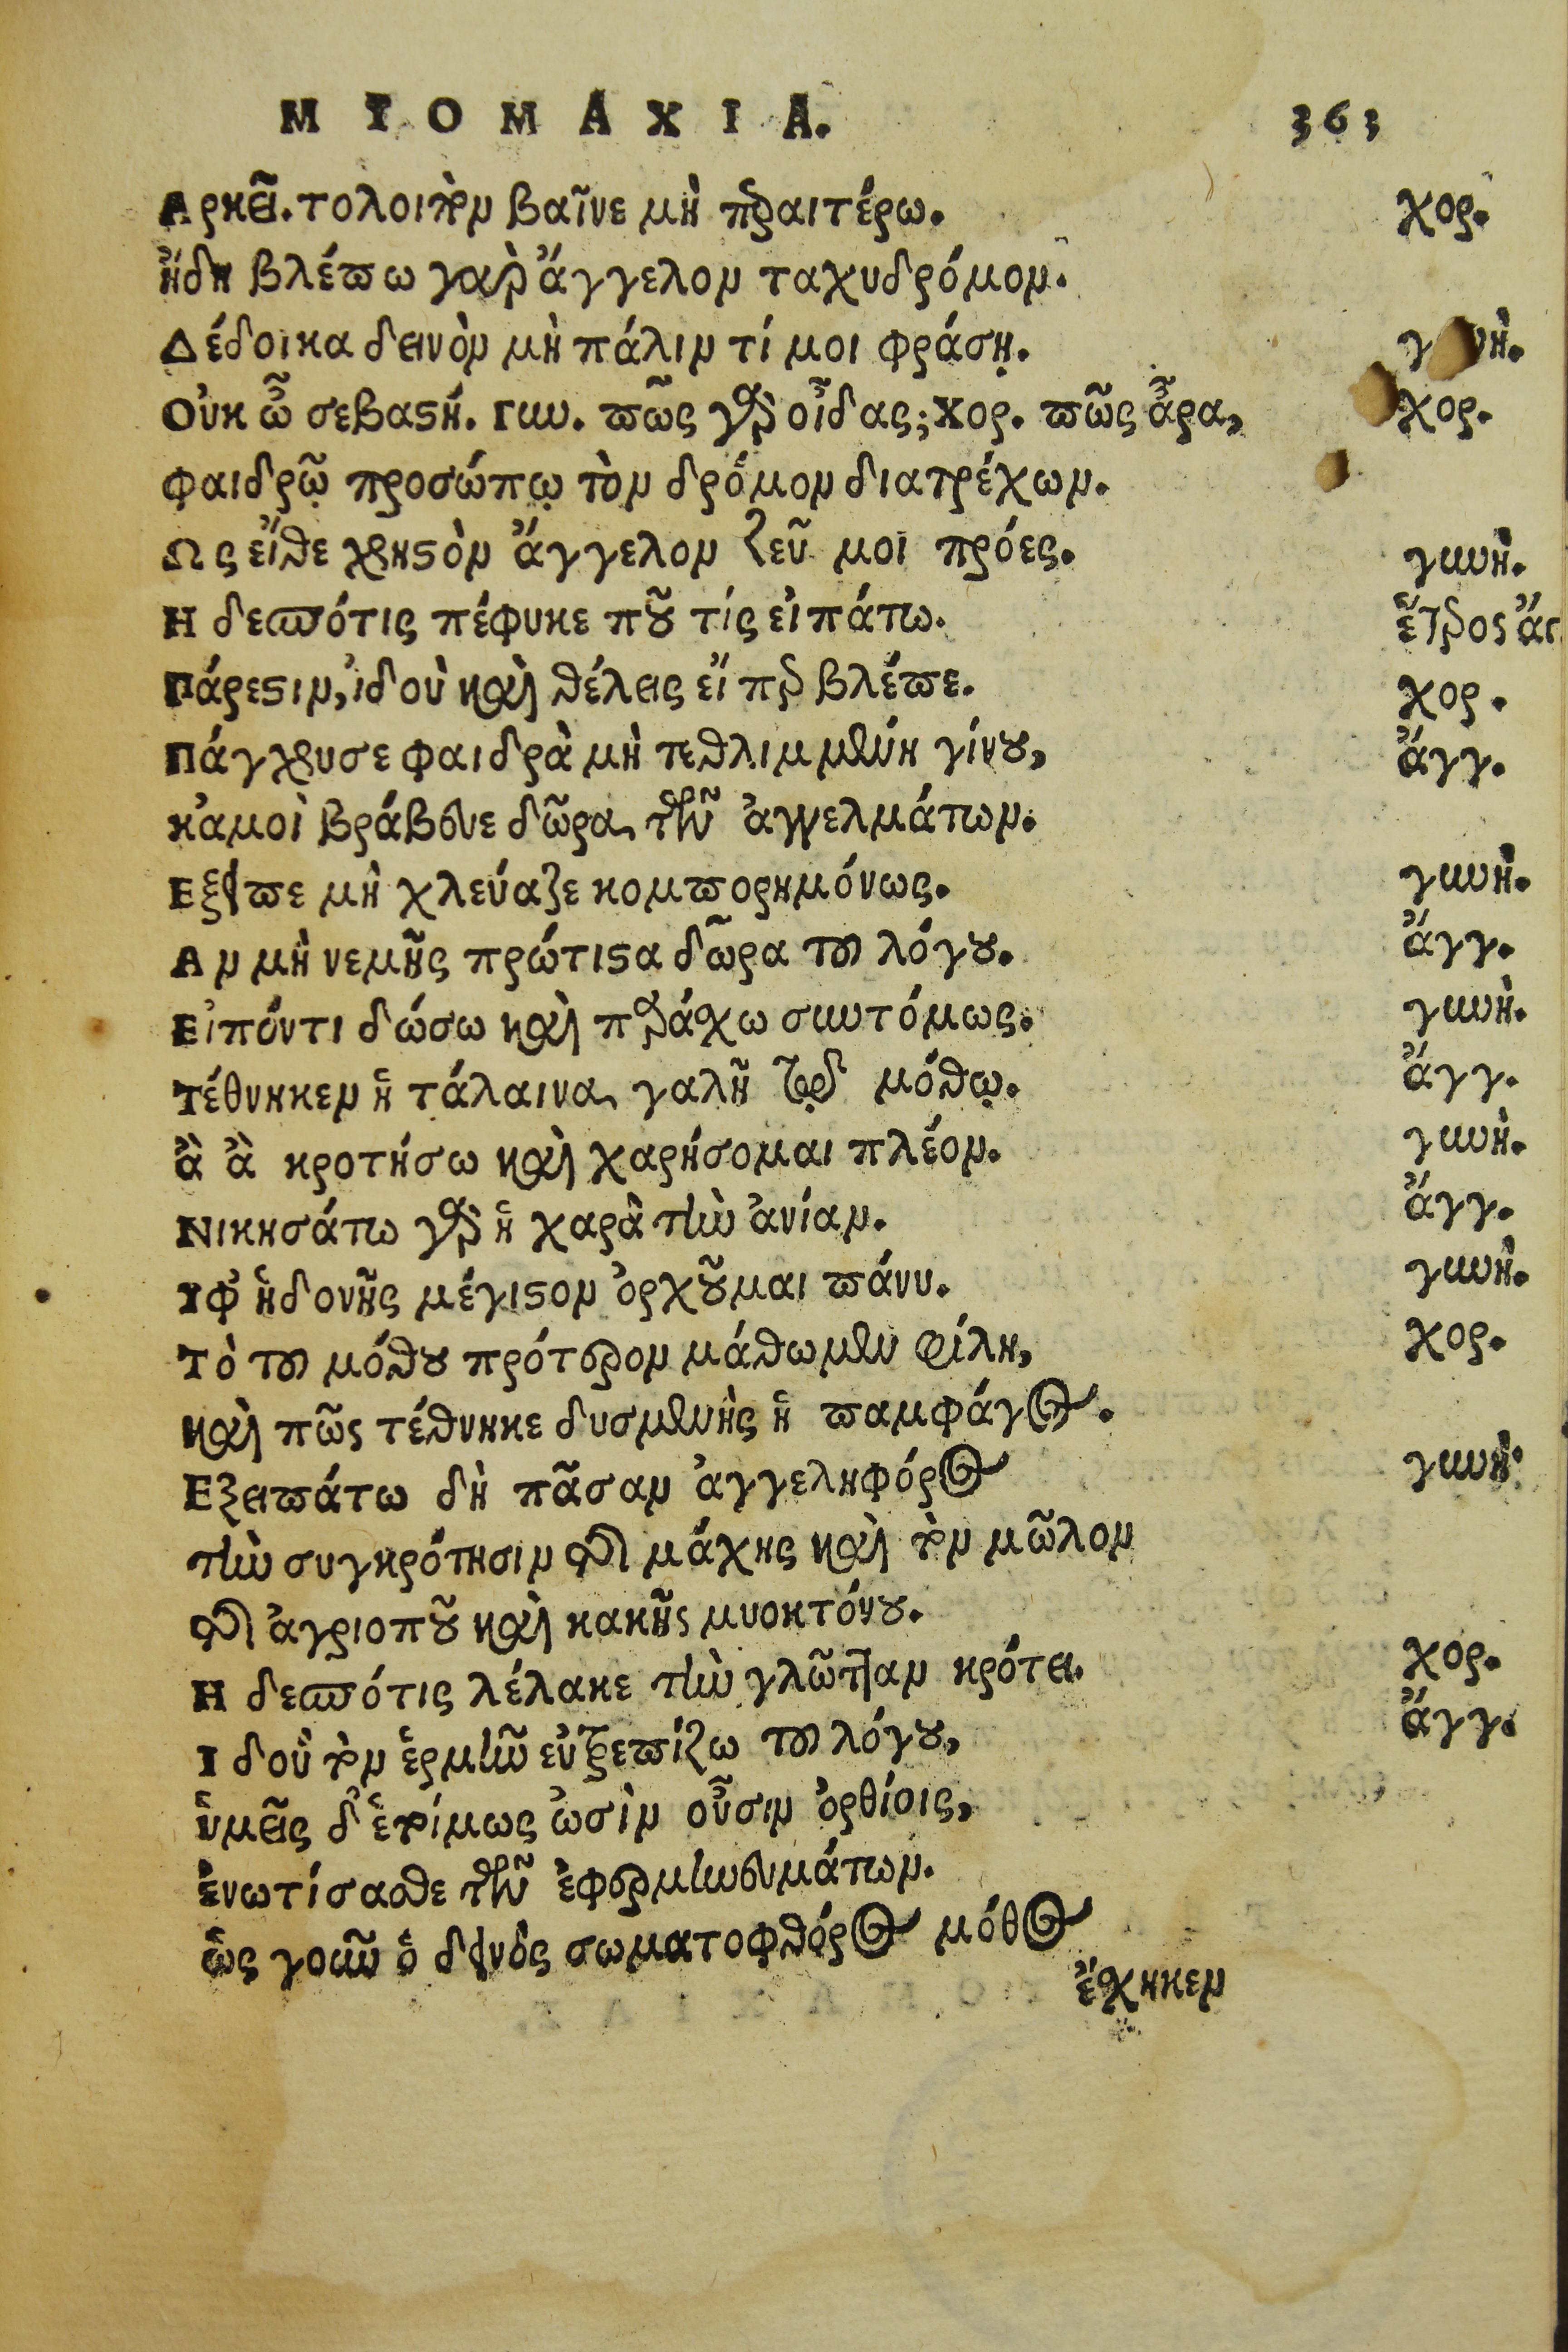 ΜΥΟΜΑΧΙΑ. 363
Αρκεῖ. τολοιπὸν βαῖνε μὴ πραιτέρω. χορ.
ἤδη βλέπω γαρ̀ ἄγγελον ταχυδρόμον.
Δέδοικα δεινὸν μὴ πάλιν τί μοι φράσῃ.
Οὐκ ὦ σεβαστή. Γυν. πῶς γὰρ οἶδας; Χορ. πῶς ἆρα, χορ.
φαιδρῷ προσώπῳ τὸν δρόμον διατρέχων.
Ως εἴθε χρηστὸν ἄγγελον ζεῦ μοι πρόες. γυνή.
Η δεσπότις πέφυκε ποῦ τίς εἰπάτω. ἕτερος ἄγ
Πάρεστιν, ἰδοὺ καὶ θέλεις εἴπερ βλέπε. χορ.
Πάγχρυσε φαιδρὰ μὴ τεθλιμμένη γίνου, ἄγγ.
κἀμοὶ βράβευε δῶρα τῶν ἀγγελμάτων.
Εξειπε μὴ χλεύαζε κομπορρημόνως. γυνή.
Αν μὴ νεμῇς πρώτιστα δῶρα τοῦ λόγου. ἄγγ.
Εἰπόντι δώσω καὶ παράσχω συντόμως. γυνή.
Τέθνηκεν ἡ τάλαινα γαλῆ τῷ μόθῳ. ἄγγ.
ἃ ἃ κροτήσω καὶ χαρήσομαι πλέον. γυνή.
Νικησάτω γὰρ ἡ χαρὰ τὴν ἀνίαν. ἄγγ.
Υφ' ἡδονῆς μέγιστον ὀρχοῦμαι πάνυ. γυνή.
Τὸ τοῦ μόθου πρότερον μάθωμεν φίλη, χορ.
καὶ πῶς τέθνηκε δυσμενὴς ἡ παμφάγος.
Εξειπάτω δὴ πᾶσαν ἀγγεληφόρος γυνή:
τὴν συγκρότησιν τῆς μάχης καὶ τὸν μῶλον
τῆς ἀγριοποῦ καὶ κακῆς μυοκτόνου.
Η δεσπότις λέλακε τὴν γλῶτταν κρότει. χορ.
Ιδοὺ τὸν ἑρμῆν εὐτρεπίζω τοῦ λόγου, ἄγγ.
ὑμεῖς δ' ἑτοίμως ὠσὶν οὖσιν ὀρθίοις,
ἐνωτίσασθε τῶν ἐφερμηνευμάτων.
ὡς γοῦν ὁ δεινὸς σωματοφθόρος μόθος
ἔσχηκεν